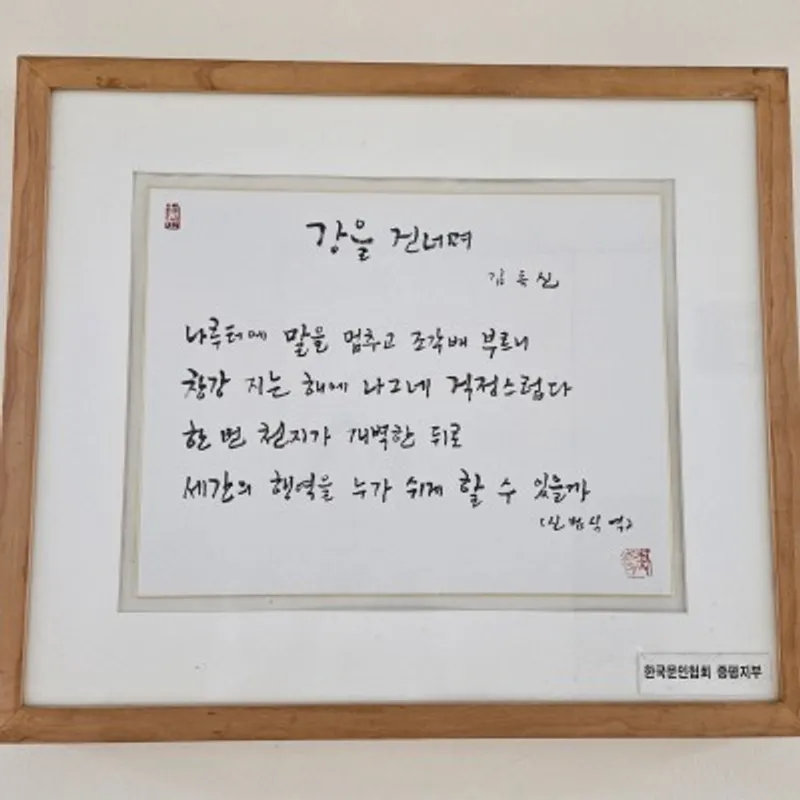 강을 건너며
김득신
나루터에 말을 멈추고 조각배 부르니
창강 지는 해에 나그네 걱정스럽다
한 번 천지가 개벽한 뒤로
세간의 행역을 누가 쉬게 할 수 있을까
(신범식 역)
한국문인협회 증평지부